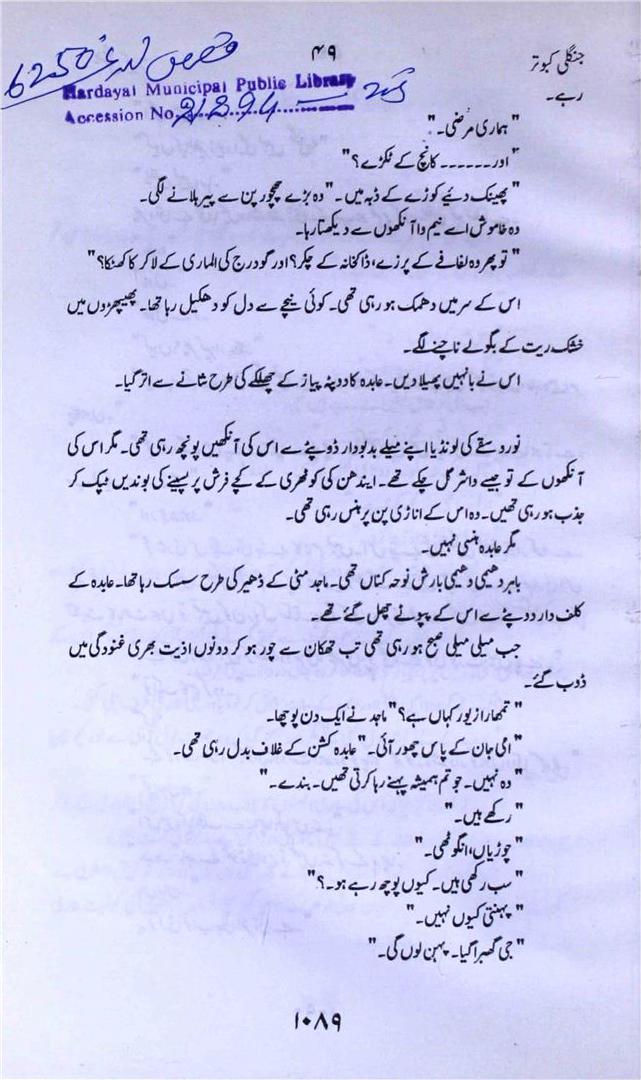 جنگلی کبوتر
۴۹
6250
Hardayal Municipal Public Library
Accession No. 21294
رہے۔
"ہماری مرضی۔"
"اور۔۔۔۔۔۔ کانچ کے ٹکڑے؟"
"پھینک دئیے کوڑے کے ڈبہ میں۔" وہ بڑے چھچورپن سے پیر ہلانے لگی۔
وہ خاموش اسے نیم وا آنکھوں سے دیکھتا رہا۔
"تو پھر وہ لفافے کے پرزے، ڈاکخانہ کے چکر؟ اور گودرج کی الماری کے لاکر کا کھٹکا؟"
اس کے سر میں دھمک ہو رہی تھی۔ کوئی نیچے سے دل کو دھکیل رہا تھا۔ پھیپھڑوں میں
خشک ریت کے بگولے ناچنے لگے۔
اس نے بانہیں پھیلا دیں۔ عابدہ کا دوپٹہ پیاز کے چھلکے کی طرح شانے سے اتر گیا۔
نورو سقّے کی لونڈیا اپنے میلے بدبودار ڈوپٹے سے اس کی آنکھیں پونچھ رہی تھی۔ مگر اس کی
آنکھوں کے تو جیسے واشر گل چکے تھے۔ ایندھن کی کوٹھری کے کچے فرش پر پسینے کی بوندیں ٹپک کر
جذب ہو رہی تھیں۔ وہ اس کے اناڑی پن پر ہنس رہی تھی۔
مگر عابدہ ہنسی نہیں۔
باہر دھیمی دھیمی بارش نوحہ کناں تھی۔ ماجد مٹی کے ڈھیر کی طرح سسک رہا تھا۔ عابدہ کے
کلف دار دوپٹے سے اس کے پپوٹے چھل گئے تھے۔
جب میلی میلی صبح ہو رہی تھی تب تھکان سے چور ہو کر دونوں اذیت بھری غنودگی میں
ڈوب گئے۔
"تمھارا زیور کہاں ہے؟" ماجد نے ایک دن پوچھا۔
"امی جان کے پاس چھوڑ آئی۔" عابدہ کشن کے غلاف بدل رہی تھی۔
"وہ نہیں۔ جو تم ہمیشہ پہنے رہا کرتی تھیں۔ بندے۔"
"رکھے ہیں۔"
"چوڑیاں، انگوٹھی۔"
"سب رکھی ہیں۔ کیوں پوچھ رہے ہو۔؟"
"پہنتی کیوں نہیں۔"
"جی گھبرا گیا۔ پہن لوں گی۔"
۱۰۸۹